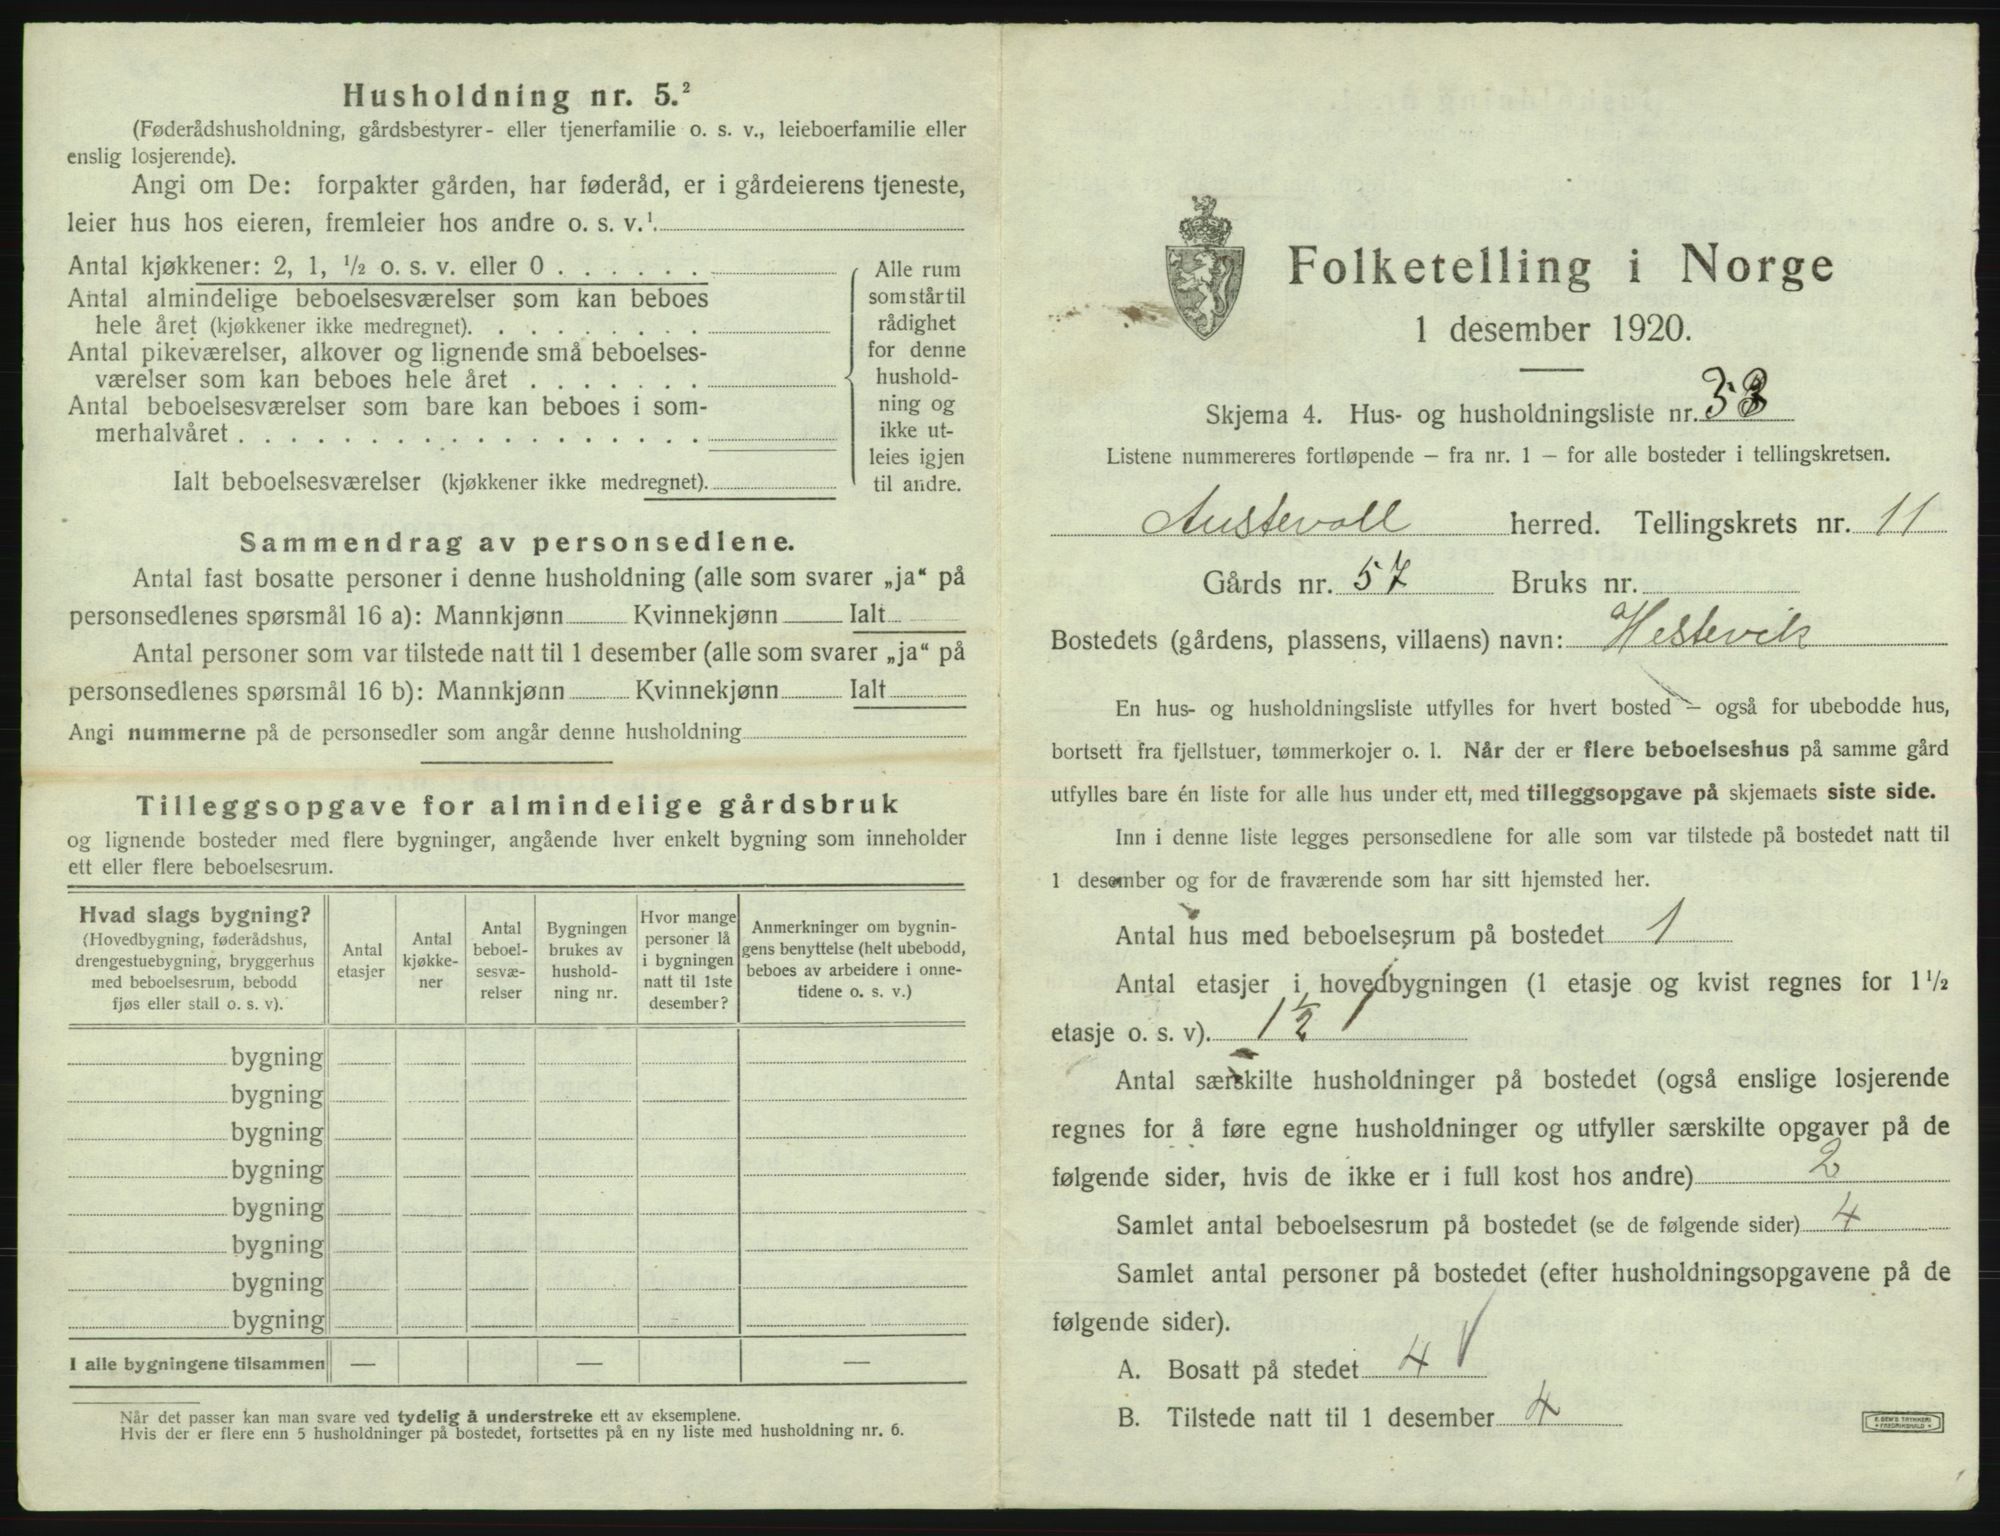 Husholdning nr. 5.²
(Føderådshusholdning, gårdsbestyrer- eller tjenerfamilie o. s. v., leieboerfamilie eller
enslig losjerende).
Angi om De: forpakter gården, har føderåd, er i gårdeierens tjeneste,
leier hus hos eieren, fremleier hos andre o. s. v.¹
Antal kjøkkener: 2, 1, ½ o. s. v. eller 0 . . . . . .
Antal almindelige beboelsesværelser som kan beboes
hele året (kjøkkener ikke medregnet). . . . . . . . .
Antal pikeværelser, alkover og lignende små beboelses-
værelser som kan beboes hele året . . . . . . .
Antal beboelsesværelser som bare kan beboes i som-
merhalvåret . . . . . . . . . . . . . . . . . .
Ialt beboelsesværelser (kjøkkener ikke medregnet).
Alle rum
som står til
rådighet
for denne
hushold-
ning og
ikke ut-
leies igjen
til andre.
Sammendrag av personsedlene.
Antal fast bosatte personer i denne husholdning (alle som svarer „ja“ på
personsedlenes spørsmål 16 a): Mannkjønn Kvinnekjønn Ialt
Antal personer som var tilstede natt til 1 desember (alle som svarer „ja“ på
personsedlenes spørsmål 16 b): Mannkjønn Kvinnekjønn Ialt
Angi nummerne på de personsedler som angår denne husholdning
Tilleggsopgave for almindelige gårdsbruk
og lignende bosteder med flere bygninger, angående hver enkelt bygning som inneholder
ett eller flere beboelsesrum.
Hvad slags bygning?
(Hovedbygning, føderådshus,
drengestuebygning, bryggerhus
med beboelsesrum, bebodd
fjøs eller stall o. s. v).
Antal
etasjer
Antal
kjøkke-
ner
Antal
beboel-
sesvæ-
relser
Bygningen
brukes av
hushold-
ning nr.
Hvor mange
personer lå
i bygningen
natt til 1ste
desember?
Anmerkninger om bygnin-
gens benyttelse (helt ubebodd,
beboes av arbeidere i onne-
tidene o. s. v.)
bygning
bygning
bygning
bygning
bygning
bygning
bygning
bygning
I alle bygningene tilsammen — — —
Når det passer kan man svare ved tydelig å understreke ett av eksemplene.
Hvis der er flere enn 5 husholdninger på bostedet, fortsettes på en ny liste med husholdning nr. 6.
Folketelling i Norge
1 desember 1920.
Skjema 4. Hus- og husholdningsliste nr.
Listene nummereres fortløpende – fra nr. 1 – for alle bosteder i tellingskretsen.
Austevoll herred. Tellingskrets nr. 11
Gårds nr. 57 Bruks nr.
Bostedets (gårdens, plassens, villaens) navn: Hestevik
En hus- og husholdningsliste utfylles for hvert bosted – også for ubebodde hus,
bortsett fra fjellstuer, tømmerkojer o. l. Når der er flere beboelseshus på samme gård
utfylles bare én liste for alle hus under ett, med tilleggsopgave på skjemaets siste side.
Inn i denne liste legges personsedlene for alle som var tilstede på bostedet natt til
1 desember og for de fraværende som har sitt hjemsted her.
Antal hus med beboelsesrum på bostedet 1
Antal etasjer i hovedbygningen (1 etasje og kvist regnes for 1½
etasje o. s. v). 1½
Antal særskilte husholdninger på bostedet (også enslige losjerende
regnes for å føre egne husholdninger og utfyller særskilte opgaver på de
følgende sider, hvis de ikke er i full kost hos andre) 2
Samlet antal beboelsesrum på bostedet (se de følgende sider) 4
Samlet antal personer på bostedet (efter husholdningsopgavene på de
følgende sider).
A. Bosatt på stedet 4
B. Tilstede natt til 1 desember 4